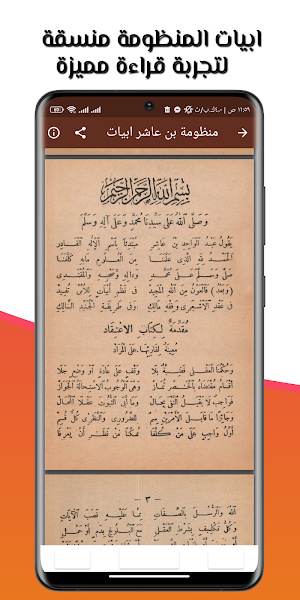 ابيات المنظومة منسقة
لتجربة قراءة مميزة
١١:٥٩ ص
منظومة بن عاشر ابيات
بسم الله الرحمن الرحيم
وَصَلَّى اللهُ عَلَى سَيِّدِنَا مُحَمَّدٍ وَعَلَى آلِهِ وَسَلَّمَ
يَقُولُ عَبْدُ الْوَاحِدِ بْنُ عَاشِرِ مُبْتَدِئًا بِاسْمِ الْإِلَهِ الْقَادِرِ
الْحَمْدُ لِلهِ الَّذِي عَلَّمَنَا مِنَ الْعُلُومِ مَا بِهِ كَلَّفَنَا
صَلَّى وَسَلَّمَ عَلَى مُحَمَّدِ وَآلِهِ وَصَحْبِهِ وَالْمُقْتَدِي
(وَبَعْدُ) فَالْعَوْنُ مِنَ اللهِ الْمَجِيدِ فِي نَظْمِ أَبْيَاتٍ لِلْأُمِّيِّ تُفِيدُ
فِي عَقْدِ الْأَشْعَرِي وَفِقْهِ مَالِكِ وَفِي طَرِيقَةِ الْجُنَيْدِ السَّالِكِ
مُقَدِّمَةٌ لِكِتَابِ الِاعْتِقَادِ
مُعِينَةٌ لِقَارِئِهَا عَلَى الْمُرَادِ
وَحُكْمُنَا الْعَقْلِي قَضِيَّةٌ بِلَا وَقْفٍ عَلَى عَادَةٍ أَوْ وَضْعٍ جَلَا
أَقْسَامُ مُقْتَضَاهُ بِالْحَصْرِ تُمَازُ وَهِيَ الْوُجُوبُ الِاسْتِحَالَةُ الْجَوَازُ
فَوَاجِبٌ لَا يَقْبَلُ النَّفْيَ بِحَالٍ وَمَا أَبَى الثُّبُوتَ عَقْلًا الْمُحَالُ
وَجَائِزًا مَا قَابَلَ الْأَمْرَيْنِ سِمْ لِلضَّرُورِي وَالنَّظَرِي كُلٌّ قُسِمْ
أَوَّلُ وَاجِبٍ عَلَى مَنْ كُلِّفَا مُمَكَّنًا مِنْ نَظَرٍ أَنْ يَعْرِفَا
— ٣ —
اللهَ وَالرُّسْلَ بِالصِّفَاتِ مِمَّا عَلَيْهِ نَصَبَ الْآيَاتِ
وَكُلُّ تَكْلِيفٍ بِشَرْطِ الْعَقْلِ مَعَ الْبُلُوغِ بِدَمٍ أَوْ حَمْلِ